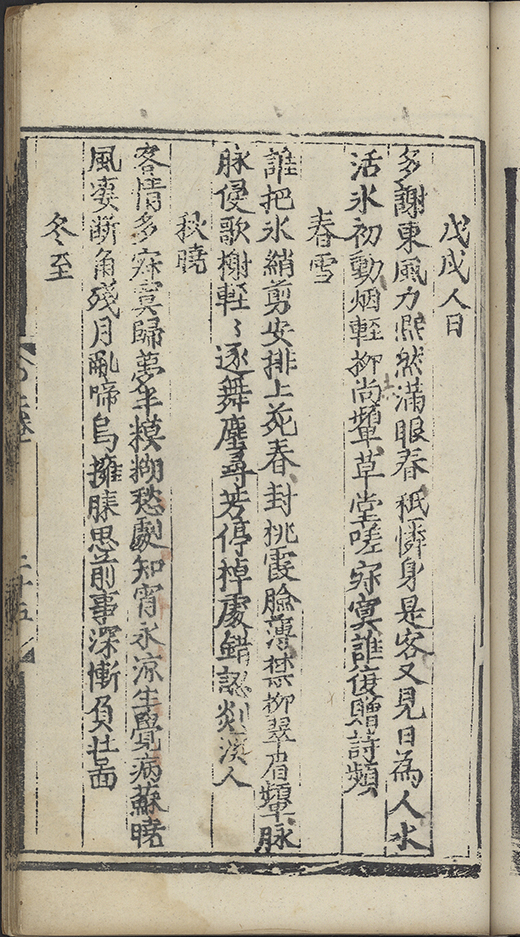 戊戌人日
多謝東風力熙然滿眼春秪憐身是客又見日為人水
活氷初動烟輕柳尚顰草堂嗟寂寞誰復贈詩頻
春雪
誰把氷綃剪安排上苑春封桃霞臉薄禁柳翠眉顰脉
脉侵歌榭輕〻逐舞塵尋芳停棹處錯認剡溪人
秋曉
客情多寂寞歸夢半糢糊愁劇知宵永凉生覺病蘇曉
風凄断角殘月亂啼烏擁膝思前事深慚負壮圖
冬至
二十五